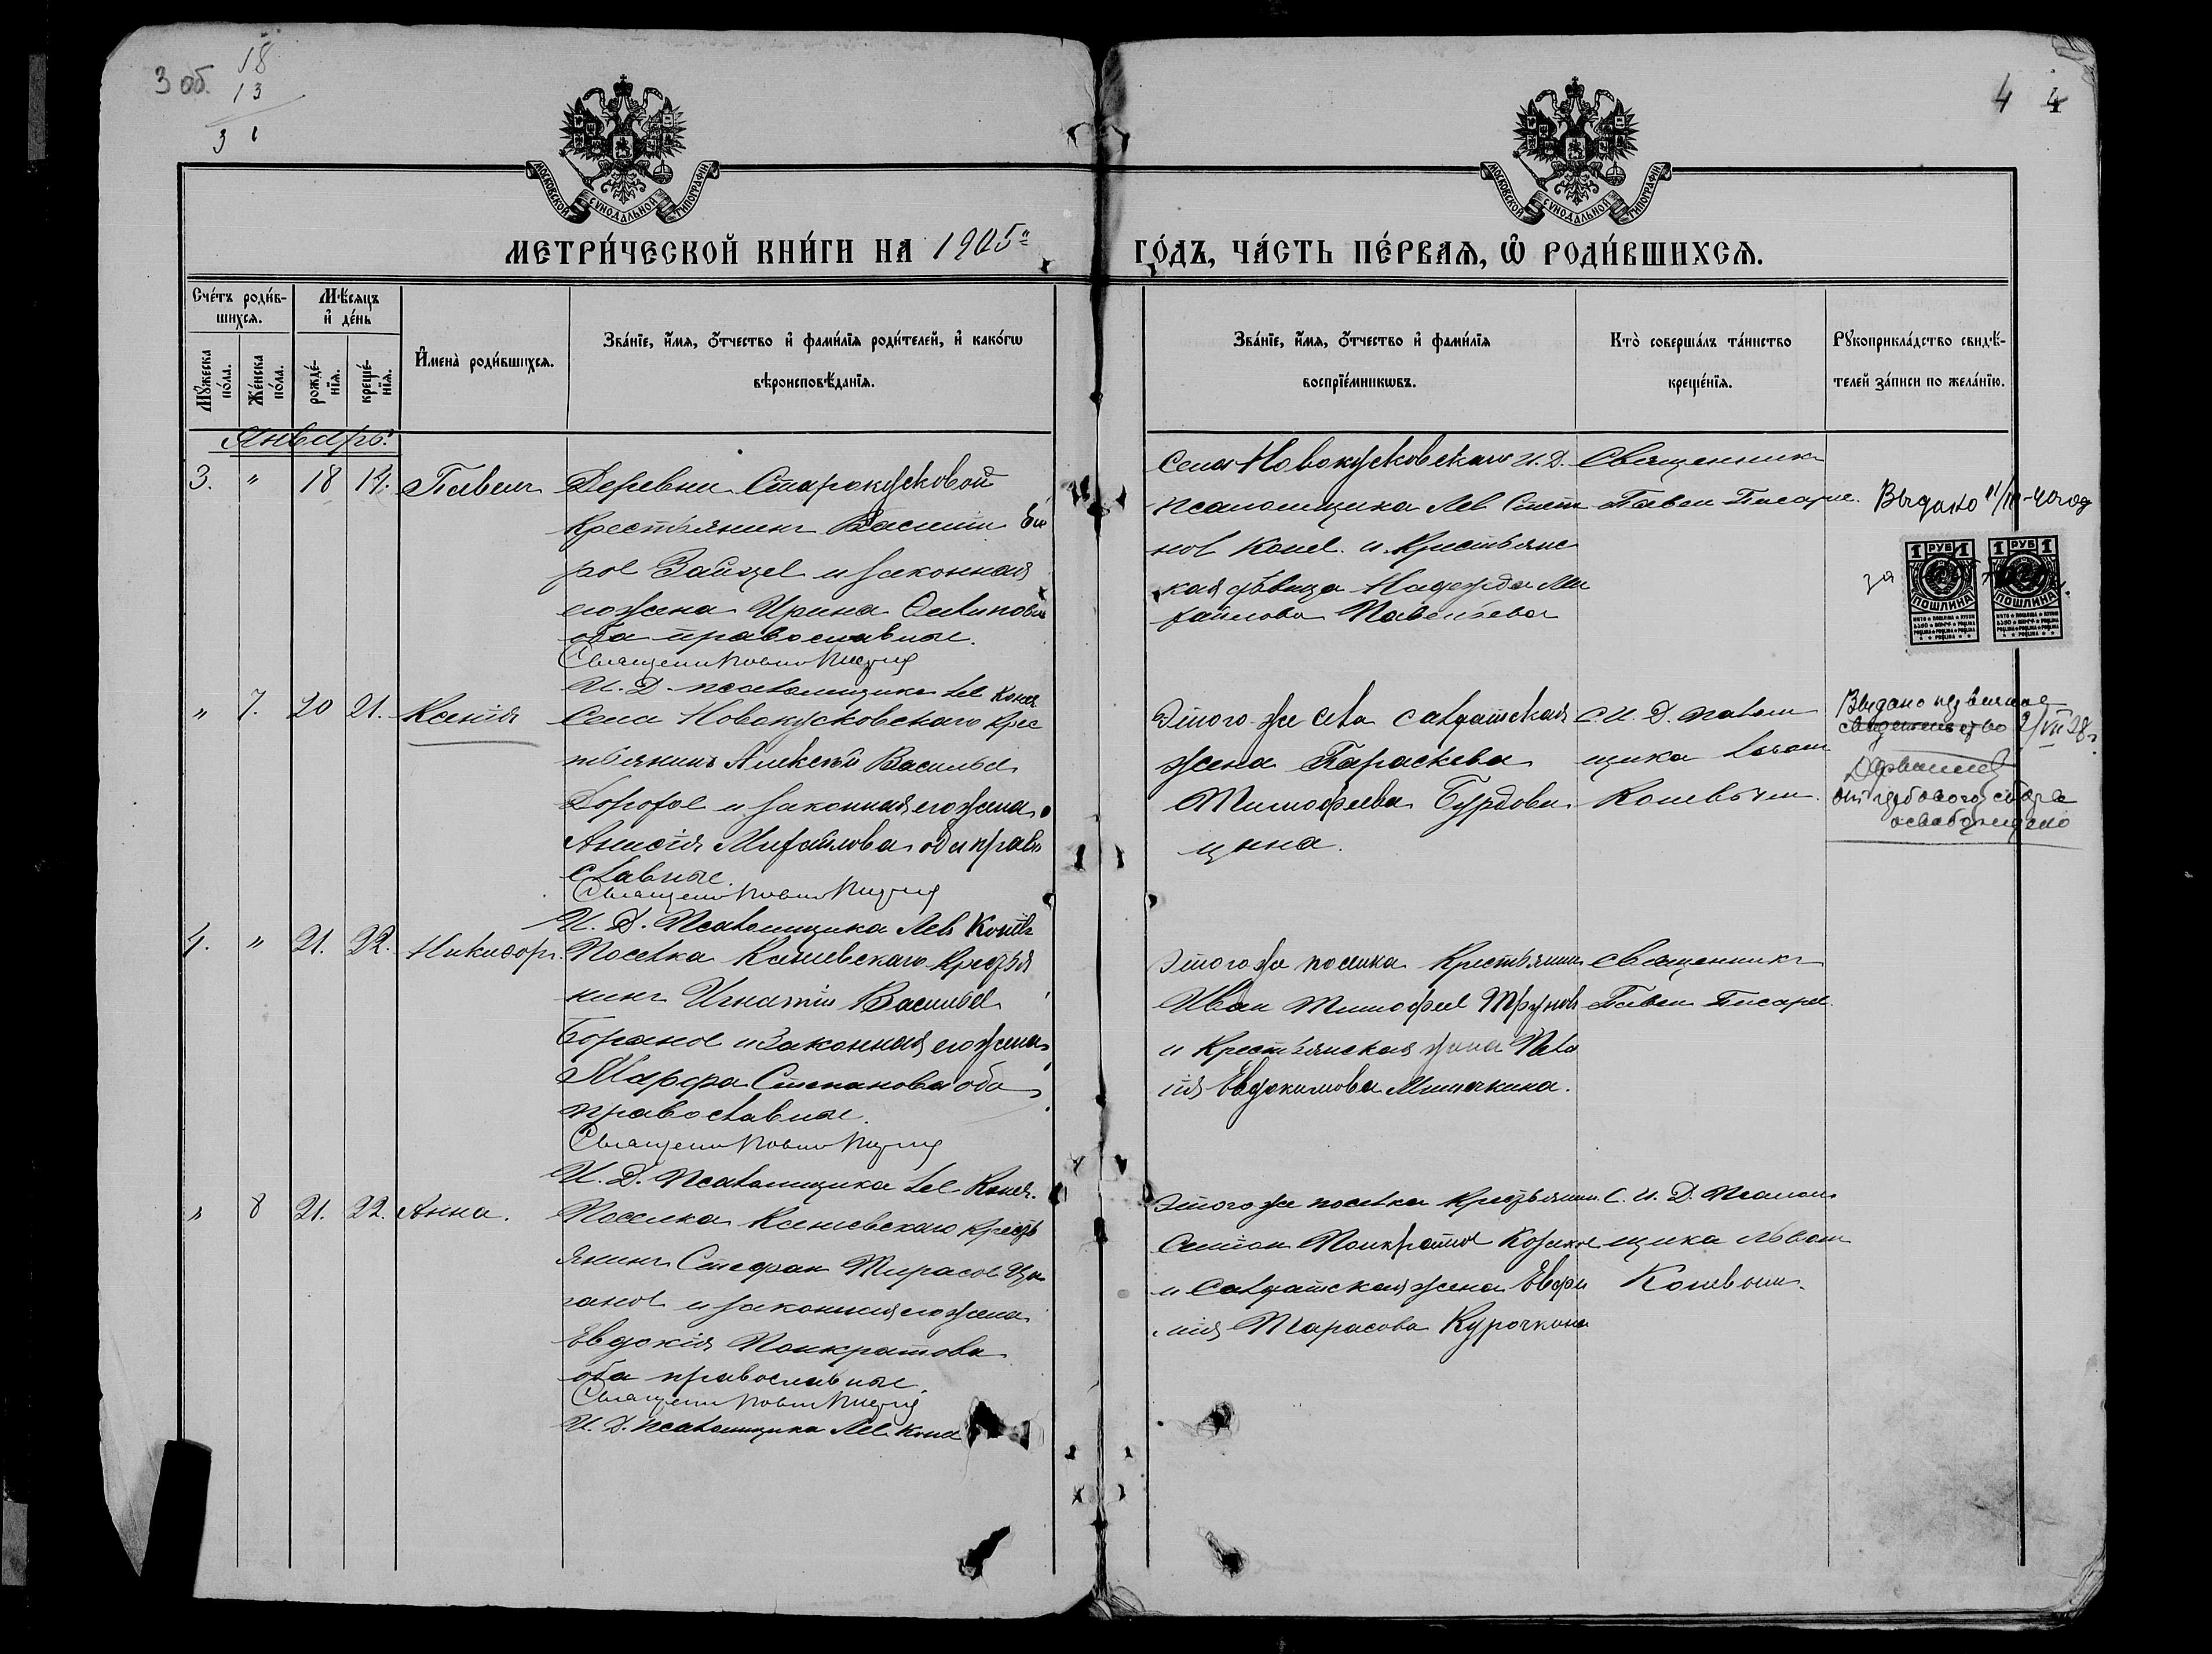 3 об.
18
13
31
4 4
МОСКОВСКОЙ СѴНОДАЛЬНОЙ ТИПОГРАФІИ
МОСКОВСКОЙ СѴНОДАЛЬНОЙ ТИПОГРАФІИ
МЕТРИ́ЧЕСКОЙ КНИ́ГИ НА 1905
ГО́ДЪ, ЧА́СТЬ ПЕ́РВАЯ, Ѡ҆ РОДИ́ВШИХСЯ.
Сче́тъ роди́в-
шихся.
Мꙋ́жеска по́ла.
Же́нска по́ла.
Мѣ́сяцъ
и҆ де́нь
рожде́-
нїя.
креще́-
нїя.
И҆мена̀ роди́вшихся.
Зва́нїе, и҆́мя, ѻ҆́тчество и҆ фами́лїя роди́телей, и҆ како́гѡ
вѣроисповѣ́данїя.
Зва́нїе, и҆́мя, ѻ҆́тчество и҆ фами́лїя
воспрїе́мникѡвъ.
Кто̀ соверша́лъ та́инство
креще́нїя.
Рꙋкоприкла́дство свидѣ́-
телей за́писи по жела́нїю.
Январь.
3. " 18 19. Павелъ
Деревни Старокусковой
Крестьянинъ Василий
Зайцев и законная
его жена Ирина
оба православные.
И. Д. псаломщика Лев
Села Новокусковскаго И. Д.
псаломщика Лев
и Крестьянс
кая девица Надежда Ми
хайлова Савельева
Священник
Павел Писарев.
Выдано 11/III-40 год
за
1 РУБ 1 ПОШЛИНА
1 РУБ 1 ПОШЛИНА
" 7. 20 21. Ксенія
Села Новокусковскаго Крес
тьянинъ Алексѣй Васильев
Дорофе и законная его жена
Анисія Михайлова оба право
славные.
И. Д. Псаломщика Лев
Этого же села салдатская
жена Параскева
Тимофеева Бурдови
цына.
С И. Д. псалом
щика Львом
Выдано извещение
свидетельство 2/VII 38 г.
от гербового сбора
освобождено
4. " 21. 22. Никифоръ.
Поселка Ксеньевскаго Крестья
нинъ Игнатій Васильев
Боранов и Законная его жена
Марфа Степанова оба
православные.
И. Д. Псаломщика Лев
Этого же поселка Крестьянин
Иван Тимофеев Трунов
и Крестьянская жена Пела
гія Евдокимова Мишечкина.
Священникъ
Павел Писарев.
" 8 21. 22. Анна.
Поселка Ксеньевскаго Кресть
янинъ Стефан Тарасов Цы
ганов и законная его жена
Евдокія Понкратова
оба православные.
И. Д. псаломщика Лев
Этого же поселка Крестьянин
Семіон Понкратов
и Салдатская жена Евфи
мія Тарасова Курочкина
С. И. Д. Псалом
щика Львом